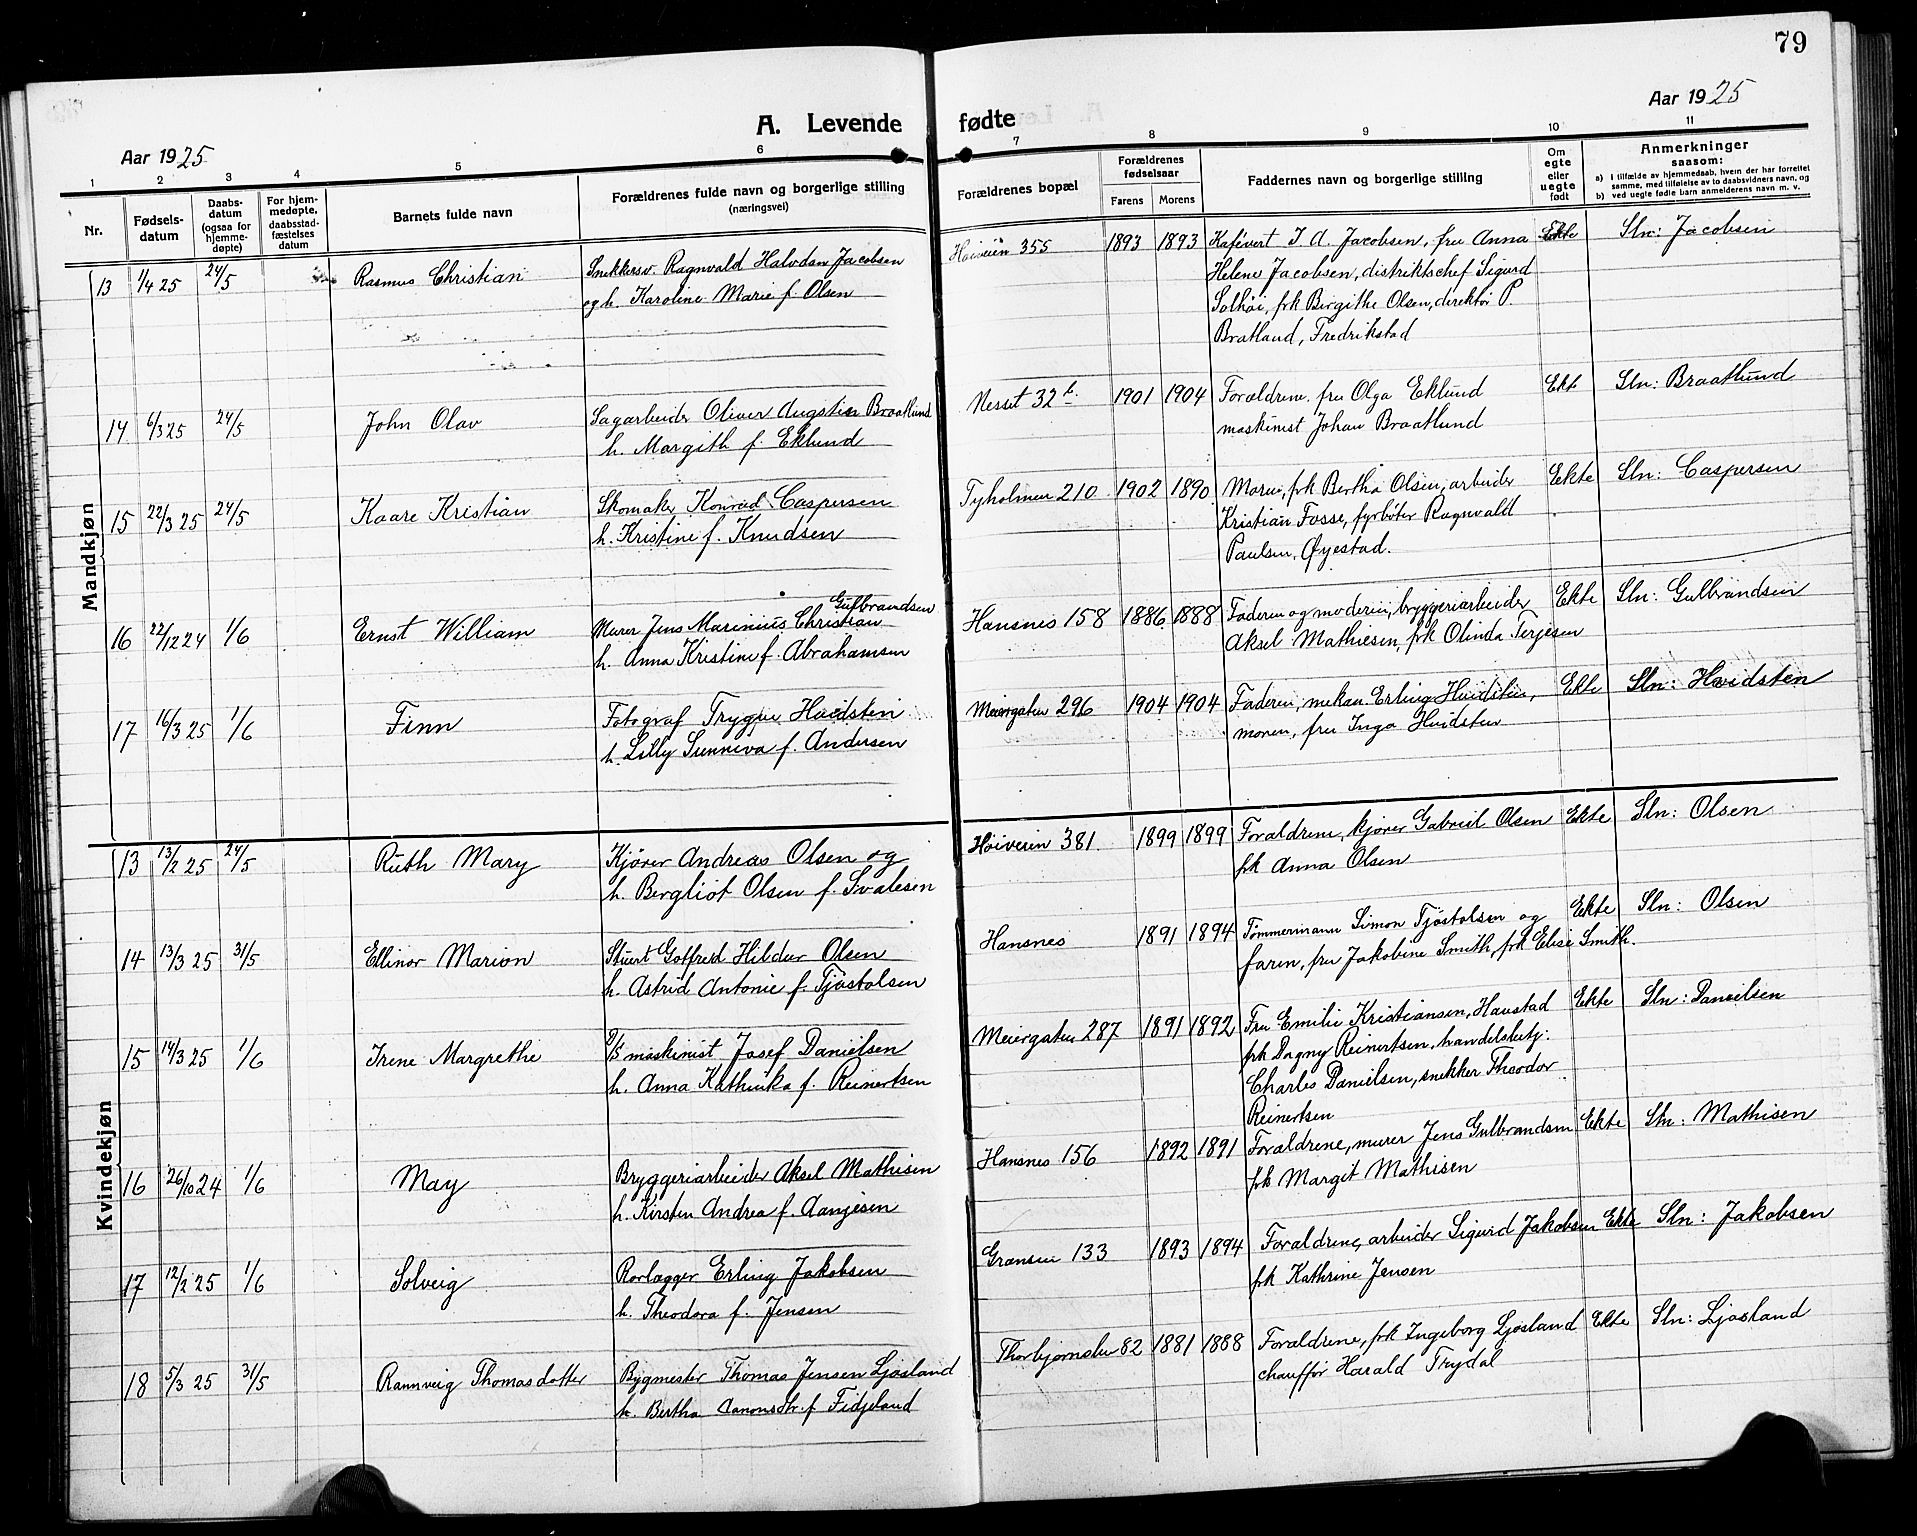 79
Aar 1925
A. Levende fødte
Aar 1925
1 2 3 4 5 6 7 8 9 10 11
Nr.
Fødsels-
datum
Daabs-
datum
(ogsaa for
hjemme-
døpte)
For hjem-
medøpte,
daabsstad-
fæstelses
datum
Barnets fulde navn
Forældrenes fulde navn og borgerlige stilling
(næringsvei)
Forældrenes bopæl
Forældrenes
fødselsaar
Farens Morens
Faddernes navn og borgerlige stilling
Om
egte
eller
uegte
født
Anmerkninger
saasom:
a) I tilfælde av hjemmedaab, hvem der har forrettet
samme, med tilføielse av to daabsvidners navn, og
b) ved uegte fødte barn anmelderens navn m. v.
Mandkjøn
13 1/4 25 24/5 Rasmus Christian Snekkersv. Ragnvald Halvdan Jacobsen Høiveien 355 1893 1893 Kafévert J. A. Jacobsen, fru Anna Ekte Sln: Jacobsen
og h. Karoline Marie f. Olsen Helene Jacobsen, distriktschef Sigurd
Solhøi, frk Birgithe Olsen, direktør P.
Bratland, Fredrikstad
14 6/3 25 24/5 John Olav Sagarbeider Oliver Augstin Braatlund Nesset 32b 1901 1904 Forældrene. fru Olga Eklund Ekte Sln: Braatlund
h. Margith f. Eklund maskinist Johan Braatlund
15 22/3 25 24/5 Kaare Kristian Skomaker Konrad Caspersen Tyholmen 210 1902 1890 Moren, frk Bertha Olsen, arbeider Ekte Sln: Caspersen
h. Kristine f. Knudsen Kristian Fosse, fyrbøter Ragnvald
Paulsen, Øyestad.
16 22/12 24 1/6 Ernst William Murer Jens Marinius Christian Gulbrandsen Hansnes 158 1886 1888 Faderen og moderen, bryggeriarbeider Ekte Sln: Gulbrandsen
h. Anna Kristine f. Abrahamsen Aksel Mathiesen, frk Olinda Terjesen
17 16/3 25 1/6 Finn Fotograf Trygve Hvidsten Meiergaten 296 1904 1904 Faderen, mekan. Erling Hvidsten, Ekte Sln: Hvidsten
h. Lilly Sunneva f. Andersen moren, fru Inga Hvidsten
Kvindekjøn
13 13/2 25 24/5 Ruth Mary Kjører Andreas Olsen og Høiveien 381 1899 1899 Forældrene, kjører Gabriel Olsen Ekte Sln: Olsen
h. Bergliot Olsen f. Svalesen frk Anna Olsen
14 13/3 25 31/5 Ellinor Marion Stuert Gotfred Hildur Olsen Hansnes 1891 1894 Tømmermann Simon Tjøstolsen og Ekte Sln: Olsen
h. Astrid Antonie f. Tjøstolsen faren, fru Jakobine Smith, frk Elise Smith.
15 14/3 25 1/6 Irene Margrethe D/S maskinist Josef Danielsen Meiergaten 287 1891 1892 Fru Emilie Kristiansen, Haustad Ekte Sln: Danielsen
h. Anna Kathinka f. Reinertsen frk Dagny Reinertsen, handelsbetj.
Charles Danielsen, snekker Theodor
Reinertsen
16 26/10 24 1/6 May Bryggeriarbeider Aksel Mathisen Hansnes 156 1892 1891 Forældrene, murer Jens Gulbrandsen Ekte Sln: Mathisen
h. Kirsten Andrea f. Aanjesen frk Margit Mathisen
17 12/2 25 1/6 Solveig Rørlægger Erling Jakobsen Grønsun 133 1893 1894 Forældrene, arbeider Sigurd Jakobsen Ekte Sln: Jakobsen
h. Theodora f. Jensen frk Kathrine Jensen
18 5/3 25 31/5 Rannveig Thomasdotter Bygmester Thomas Jensen Ljosland Thorbjørnsbu 82 1881 1888 Forældrene, frk Ingeborg Ljosland Ekte Sln: Ljosland
h. Bertha Aanonsdtr. f. Fidjeland chauffør Harald Trydal